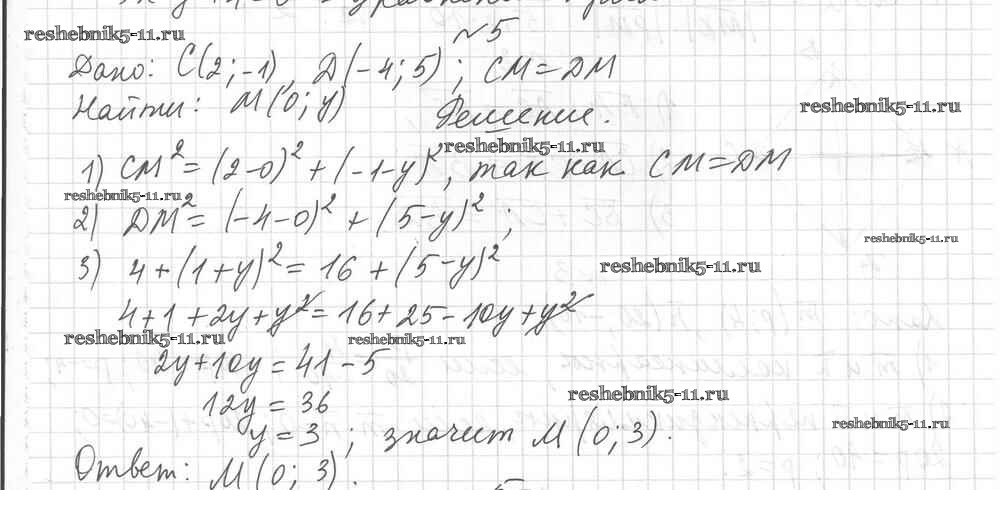 №5
reshebnik5-11.ru
Дано: C(2;-1), D(-4;5); CM=DM
Найти: M(0; y)
reshebnik5-11.ru
Решение.
reshebnik5-11.ru
1) CM²=(2-0)²+(-1-y)², так как CM=DM
reshebnik5-11.ru
2) DM²=(-4-0)²+(5-y)²;
reshebnik5-11.ru
3) 4+(1+y)²=16+(5-y)²
reshebnik5-11.ru
4+1+2y+y²=16+25-10y+y²
reshebnik5-11.ru
reshebnik5-11.ru
2y+10y=41-5
reshebnik5-11.ru
12y=36
reshebnik5-11.ru
y=3; значит M(0;3).
Ответ: M(0; 3).